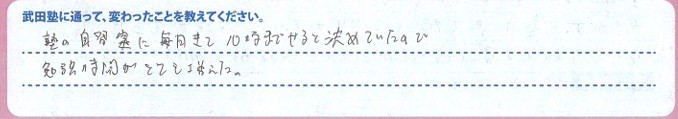 武田塾に通って、変わったことを教えてください。
塾の自習室に毎日きて10時までやると決めていたので
勉強時間がとても増えた。